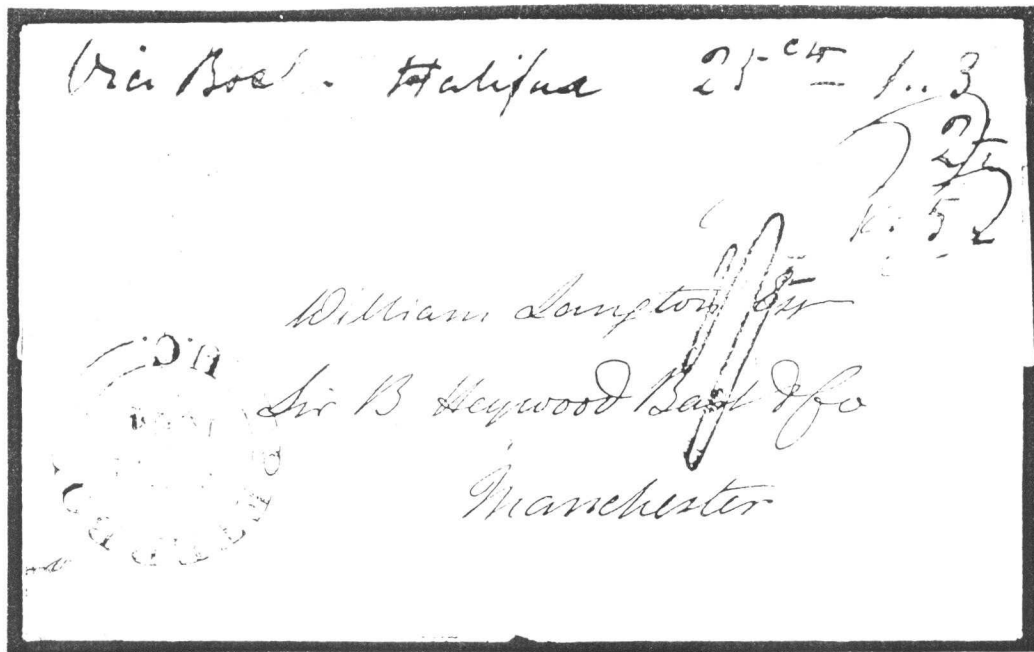 Via Bos - Halifax 25 cts 1..3
2
5
William Langton Esq
Sir B Heywood Bart & Co
Manchester
U.C.